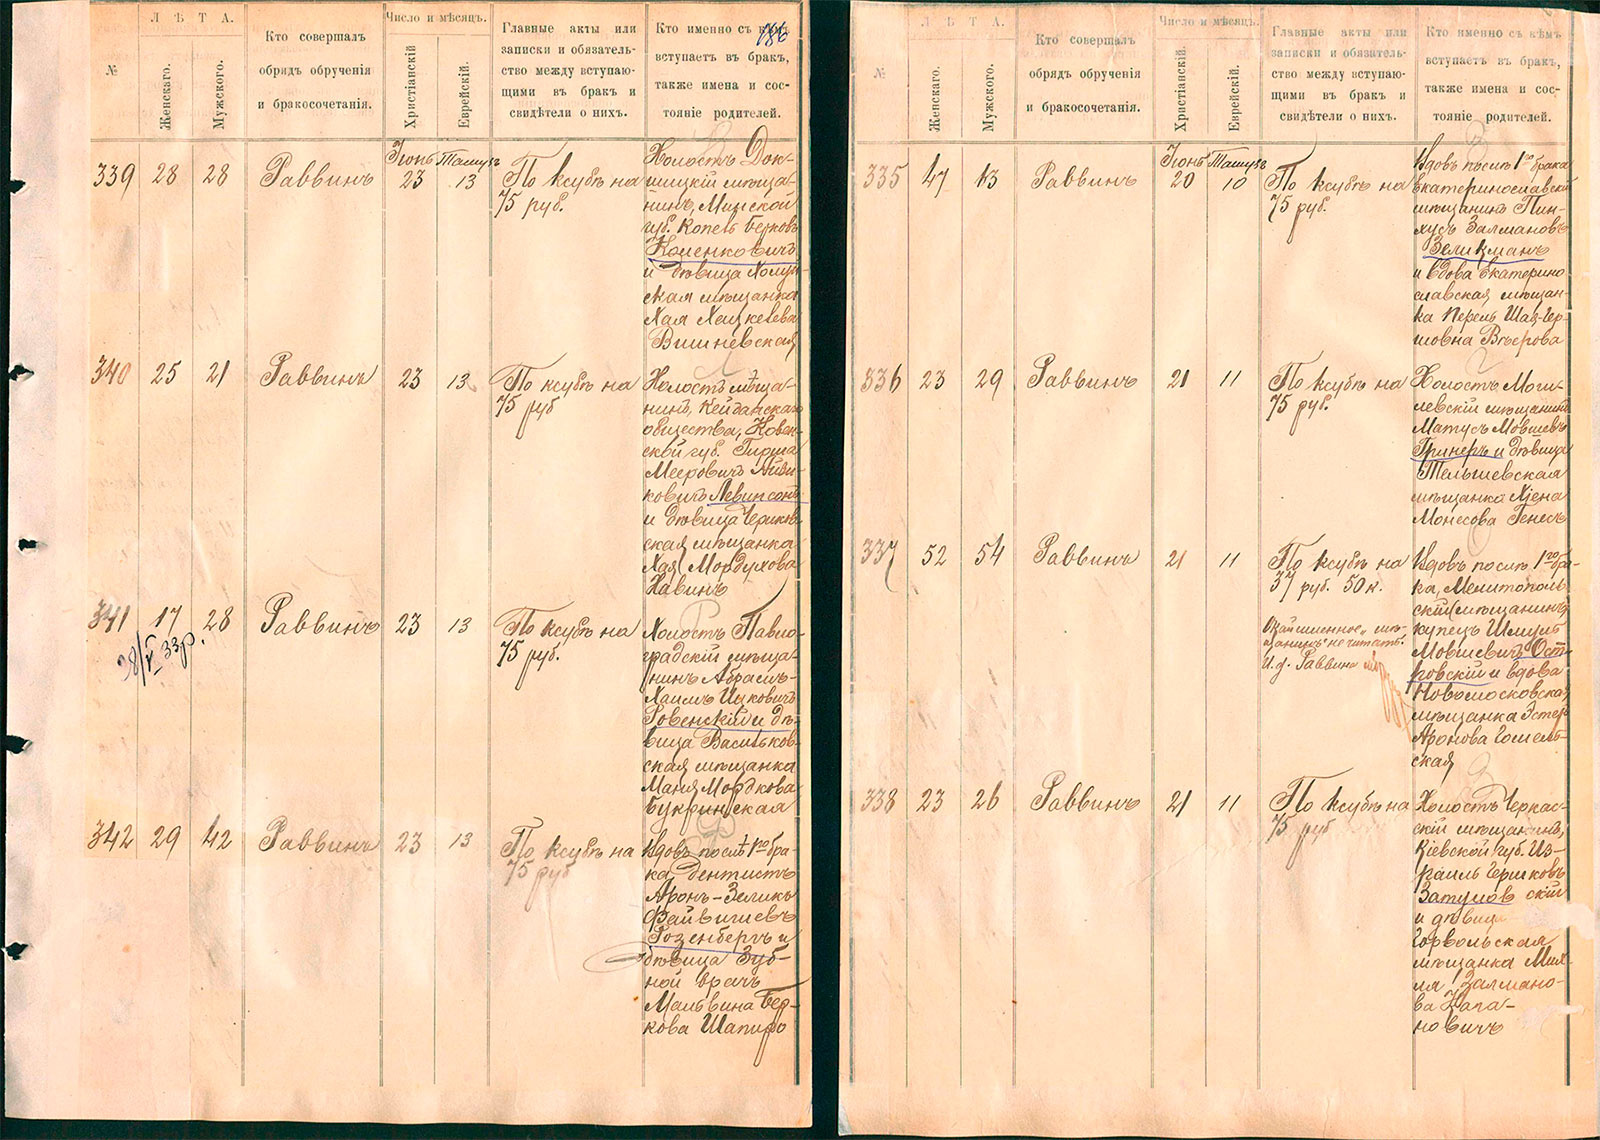 186
Л Ѣ Т А.
Число и мѣсяцъ.
№
Женскаго.
Мужского.
Кто совершалъ
обрядъ обрученія
и бракосочетанія.
Христіанскій
Еврейскій.
Главные акты или
записки и обязатель-
ство между вступаю-
щими въ бракъ и
свидѣтели о нихъ.
Кто именно съ кѣмъ
вступаетъ въ бракъ,
также имена и сос-
тояніе родителей.
339 28 28 Раввинъ
Іюнь 23
Тамузъ 13
По ксубѣ на
75 руб.
Холостъ Док-
шицкій мѣща-
нинъ, Минской
губ. Копель Берковъ
Каменковичъ
и дѣвица
мѣщанка
Хая Хацкелева
Вишневская
340 25 21 Раввинъ 23 13
По ксубѣ на
75 руб
Холостъ мѣща-
нинъ, Кейданскаго
общества, Ковен-
ской губ. Гирша
Мееровичъ
Левинсонъ
и дѣвица Чериков-
ская мѣщанка
Хая Мордухова
Хавинъ
341 17 28 Раввинъ 23 13
28/V 33 р.
По ксубѣ на
75 руб.
Холостъ Павло-
градскій мѣща-
нинъ Абрамъ-
Хаимъ Ицковичъ
Ровенскій и дѣ-
вица Васильков-
ская мѣщанка
Маня Мордкова
Букринская
342 29 42 Раввинъ 23 13
По ксубѣ на
75 руб
Вдовъ послѣ 1го бра-
ка, дентистъ
Аронъ-Зеликъ
Файвишевъ
Розенбергъ и
дѣвица Зуб-
ной врачъ
Мальвина Бер-
кова Шапиро
Л Ѣ Т А.
Число и мѣсяцъ.
№
Женскаго.
Мужского.
Кто совершалъ
обрядъ обрученія
и бракосочетанія.
Христіанскій
Еврейскій.
Главные акты или
записки и обязатель-
ство между вступаю-
щими въ бракъ и
свидѣтели о нихъ.
Кто именно съ кѣмъ
вступаетъ въ бракъ,
также имена и сос-
тояніе родителей.
335 47 Раввинъ
Іюнь 20
Тамузъ 10
По ксубѣ на
75 руб.
Вдовъ послѣ 1го брака
Екатеринославскій
мѣщанинъ Пин-
хусъ Залмановъ
Великманъ
и вдова Екатерино
славская мѣщан-
ка Перель Шая-Гер-
шовна Вѣерова
336 23 29 Раввинъ 21 11
По ксубѣ на
75 руб.
Холостъ Моги-
левскій мѣщанинъ
Матусъ Мовшевъ
Гринеръ и дѣвица
Тельшевская
мѣщанка
Монесова Генесъ
337 52 54 Раввинъ 21 11
По ксубѣ на
37 руб. 50 к.
мѣ-
щанинъ" не читать.
И.д. Раввина
Вдовъ послѣ 1го бра-
ка, Мелитополь
скій мѣщанинъ
купецъ Шмуль
Мовшевичъ Ост-
ровскій и вдова
Новомосковская
мѣщанка Эстеръ
Аронова Гомель-
ская
338 23 26 Раввинъ 21 11
По ксубѣ на
75 руб
Холостъ Черкас-
скій мѣщанинъ,
Кіевской губ. Из-
раиль Гершковъ
Затуловскій
и дѣвица
Горвольская
мѣщанка
Залмано-
ва Капа-
новичъ